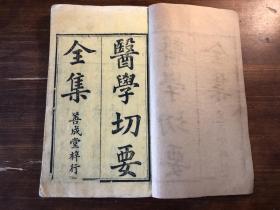 醫學切要
全集
善成堂梓行